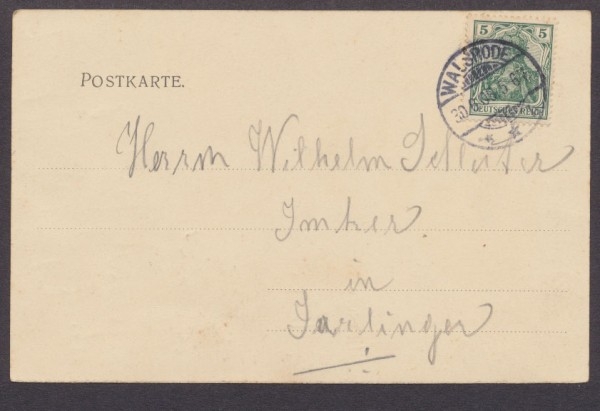 5 5
DEUTSCHES REICH
WALSRODE
POSTKARTE.
Herrn Wilhelm Schlüter
Imker
in
Jarlingen